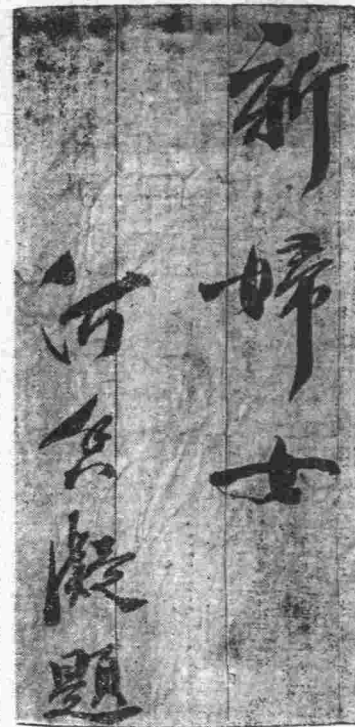 新婦女
何公凝題